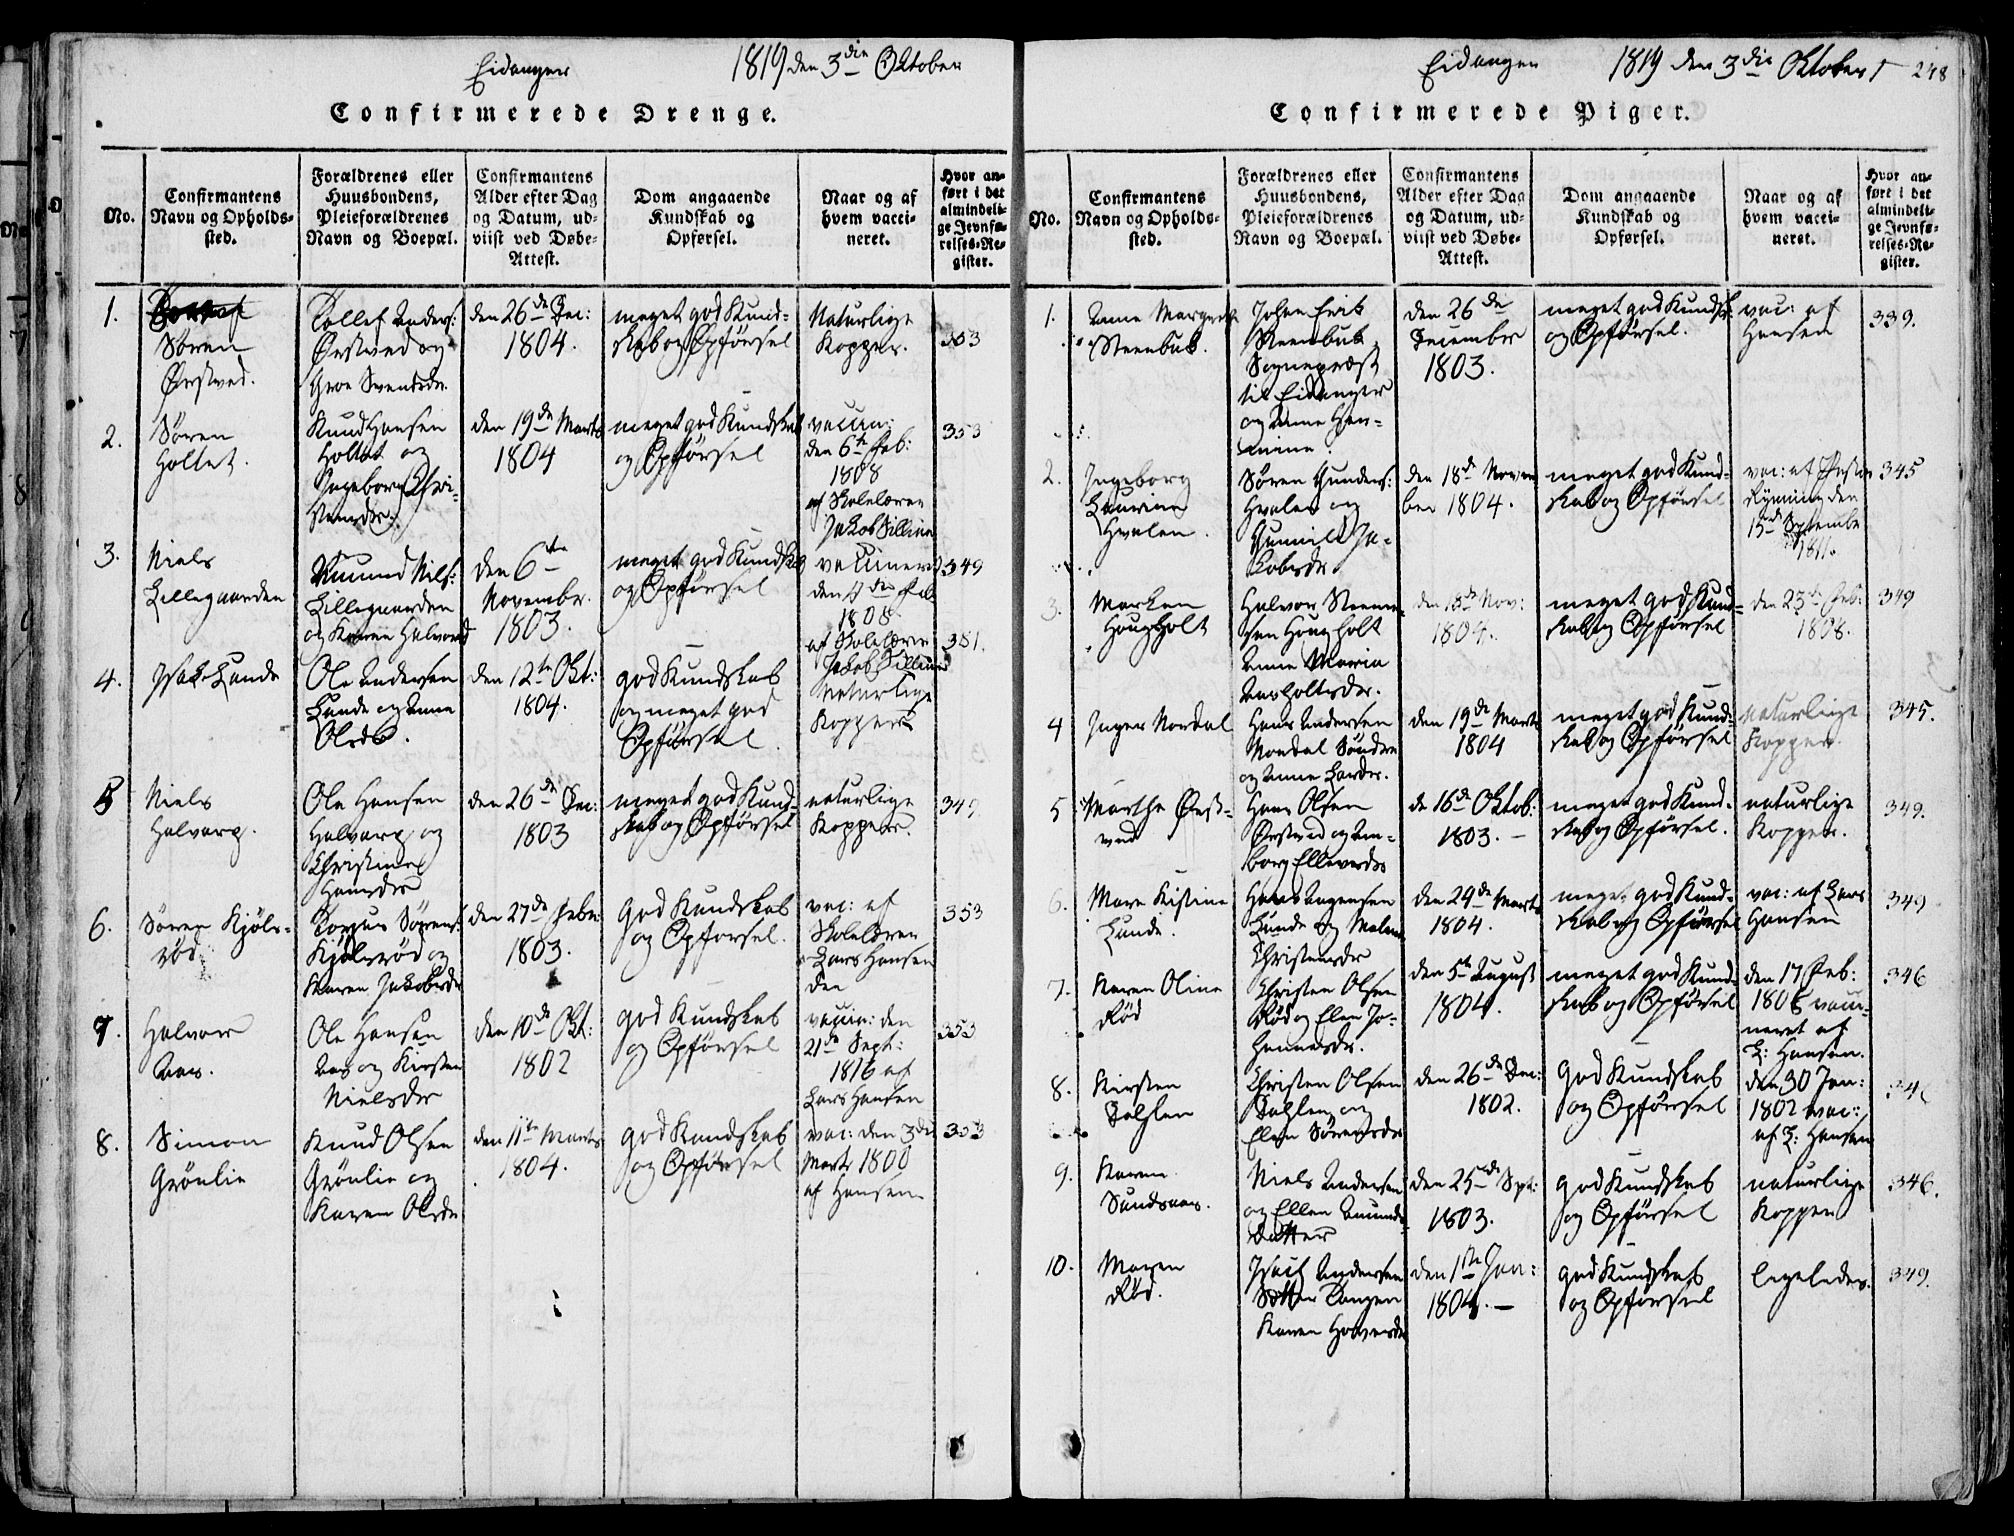 Eidanger 1819 den 3die Oktober
Confirmerede Drenge.
No.
Confirmantens
Navn og Opholds-
sted.
Forældrenes eller
Huusbondens,
Pleieforældrenes
Navn og Boepæl.
Confirmantens
Alder efter Dag
og Datum, ud-
viist ved Døbe-
Attest.
Dom angaaende
Kundskab og
Opførsel.
Naar og af
hvem vacci-
neret.
Hvor an-
ført i det
almindeli-
ge Jevnfø-
relses-Re-
gister.
1.
Søren
Ørstved.
Tollef Anders:
Ørstved og
Svendsdr.
den 26de Dec:
1804.
meget god Kund-
skab og Opførsel
Naturlige
Kopper.
353
2.
Søren
Holtet.
Knud Hansen
Holtet og
Ingeborg Chri-
stensdr.
den 19de Marts
1804
meget god Kundskab
og Opførsel
vaccin:
den 6te Feb:
1808
af Skolelærer
Jakob
353
3.
Niels
Lillegaarden
Amund Nils:
Lillegaarden
og Karen Halvorsd
den 6te
Novembr.
1803.
meget god Kundskab
og Opførsel
vaccineret
den 4de Feb
1808.
af Skolelærer
Jakob
349
4.
Isak Lunde
Ole Andersen
Lunde og Anne
Olsdr.
den 12te Okt:
1804.
god Kundskab
og meget god
Opførsel.
Naturlige
Kopper
351.
5
Niels
Halvarp.
Ole Hansen
Halvarp og
Christine
Hansdr
den 26de Dec:
1803
meget god Kund-
skab og Opførsel
naturlige
Kopper.
349
6.
Søren Kjøls-
rød.
Rasmus Sørens:
Kjølsrød og
Maren Jakobsdr
den 27de Febr:
1803.
God Kundskab
og Opførsel.
vac: af
Skolelærer
Lars Hansen
den
353
7.
Halvor
Aas.
Ole Hansen
Aas og Kirsten
Nielsdr
den 10de Okt:
1802
god Kundskab
og Opførsel
vaccin: den
21de Sept:
1816 af
Lars Hansen
353
8.
Simon
Grønlie
Knud Olsen
Grønlie og
Karen Olsdr
den 11te Marts
1804.
god Kundskab
og Opførsel
vac: den 3die
Marts 1800
af Hansen
353
Eidanger 1819 den 3die Oktober 248
Confirmerede Piger.
No.
Confirmantens
Navn og Opholds-
sted.
Forældrenes eller
Huusbondens,
Pleieforældrenes
Navn og Boepæl.
Confirmantens
Alder efter Dag
og Datum, ud-
viist ved Døbe-
Attest.
Dom angaaende
Kundskab og
Opførsel.
Naar og af
hvem vacci-
neret.
Hvor an-
ført i det
almindeli-
ge Jevnfø-
relses-Re-
gister.
1.
Anne Margrete
Steenbuk.
Johan Erik
Steenbuk,
Sognepræst
til Eidanger
og Anne Hen-
den 26de
December
1803.
meget god Kundsk:
og Opførsel.
vac: af
Hansen
339.
2.
Ingeborg
Laurine
Hvalen.
Søren Gunders:
Hvalen og
Gunnild Ja-
kobsdr
den 18de Novem
ber 1804.
meget god Kund-
skab og Opførsel
vac: af Pastor
Rynning den
15de Septembr
1811.
345
3.
Marken
Hougholt
Halvor Steen-
sen Hougholt
Anne Maria
den 18de Nov:
1804.
meget god Kund-
skab og Opførsel
den 23de Feb:
1808.
349
4
Inger Nordal
Hans Andersen
Nordal Søndre
og Anne Larsdr.
den 19de Marts
1804
meget god Kund-
skab og Opførsel
Naturlige
Kopper.
345.
5
Marthe Ørst-
ved
Hans Olsen
Ørstved og In-
borg Ellevsdr
de 16de Oktob:
1803. —
meget god Kund-
skab og Opførsel.
naturlige
Kopper.
349.
6.
Mare Kistine
Lunde.
Hans Aagensen
Lunde og Malene
Christensdr
den 24de Marts
1804.
meget god Kund-
skab og Opførsel
vac: af Lars
Hansen
349
7.
Karen Oline
Rød
Christen Olsen
Rød og Elen Jo-
hannesdr.
den 5te August
1804.
meget god Kund-
skab og Opførsel
den 17 Feb:
1806 vacci-
neret af
L: Hansen.
346
8.
Kirsten
Dahlen
Christen Olsen
Dahlen og
Elen Sørensdr
den 26de Dec:
1802.
God Kundskab
og Opførsel
den 30 Jan:
1802 vac:
af L: Hansen
346
9.
Karen
Sundsaas.
Niels Andersen
og Ellen Amunds
Datter
den 25de Spt:
1803.
god Kundskab
og Opførsel
naturlige
Kopper
346.
10.
Maren
Rød.
Isach Andersen
Sætter Tangen
Karen Halvorsdr
den 1ste Jan:
1804. —
god Kundskab
og Opførsel
ligeledes.
349.